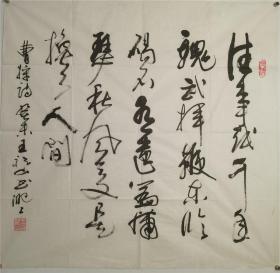 往事越千年
魏武挥鞭东临
碣石有遗篇萧
瑟秋风今又是
换了人间
曹操诗 癸未王
书